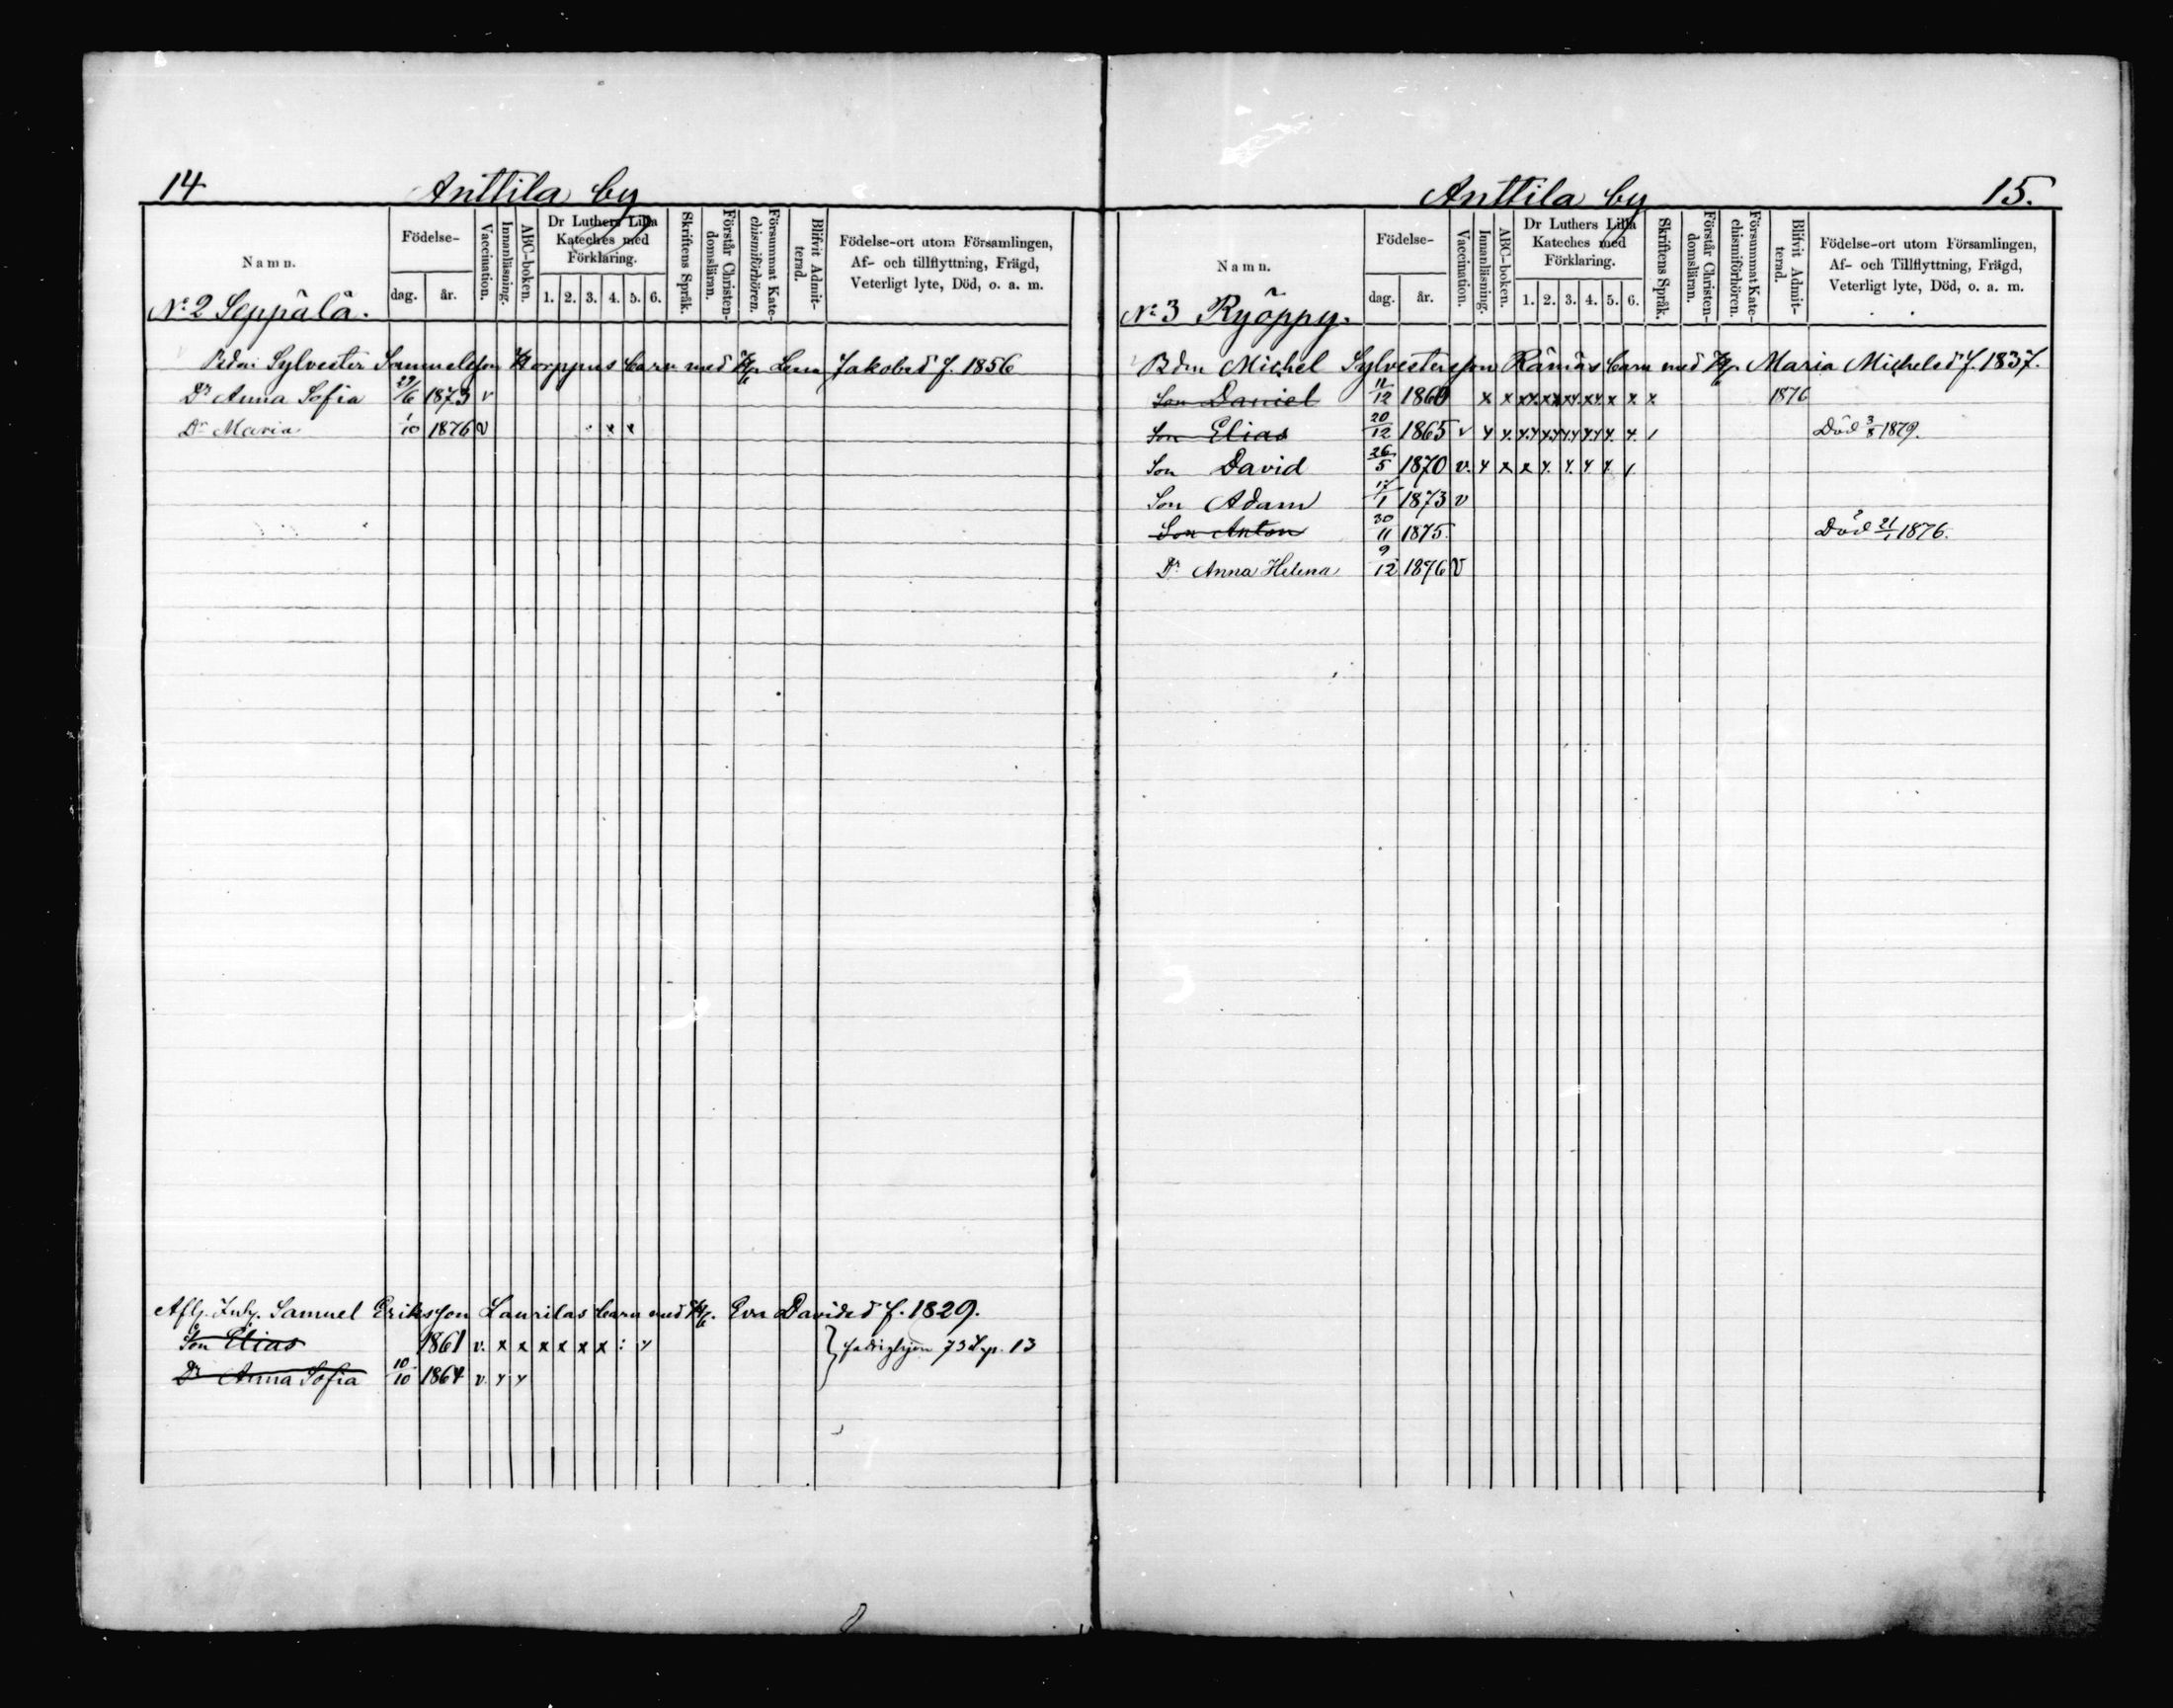 14 Anttila by
Namn.
Födelse-
dag. år.
Vaccination.
Innanläsning.
ABC-boken.
Dr Luthers Lilla
Kateches med
Förklaring.
1. 2. 3. 4. 5. 6.
Skriftens Språk.
Förstår Christen-
domsläran.
Försummat Kate-
chismiförhören.
Blifvit Admit-
terad.
Födelse-ort utom Församlingen,
Af- och tillflyttning, Frägd,
Veterligt lyte, Död, o. a. m.
N:o 2 Seppälä.
Bdn Sylvester Samuelsson Korppus barn med H/n Lena Jakobsd f. 1856
Dr Anna Sofia 29/6 1873 v
Dr Maria 1/10 1876 v x x
Afl. Inh. Samuel Eriksson Laurilas barn med H. Eva Davidsd f. 1829.
Son Elias 1861 v. x x x x x x : x } fattighjon p. 13
Dr Anna Sofia 10/10 1864 v. x x
Anttila by 15.
Namn.
Födelse-
dag. år.
Vaccination.
Innanläsning.
ABC-boken.
Dr Luthers Lilla
Kateches med
Förklaring.
1. 2. 3. 4. 5. 6.
Skriftens Språk.
Förstår Christen-
domsläran.
Försummat Kate-
chismiförhören.
Blifvit Admit-
terad.
Födelse-ort utom Församlingen,
Af- och Tillflyttning, Frägd,
Veterligt lyte, Död, o. a. m.
N:o 3 Ryöppy.
Bdn Michel Sylvestersson Rämäs barn med H/n Maria Michelsd f. 1837.
Son Daniel 11/12 1860 x x x x x x x x x x 1876
Son Elias 20/12 1865 v x x x x x x x x x / Död 3/8 1879.
Son David 26/5 1870 v. x x x x x x x /
Son Adam 17/1 1873 v
Son Anton 30/11 1875. Död 21/1 1876.
Dr Anna Helena 9/12 1876 v